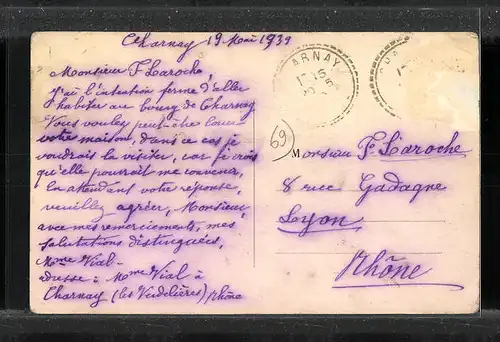 Charnay 19 Mai 1939
Monsieur F Laroche,
J'ai l'intention ferme d'aller
habiter au bourg de Charnay
Vous voulez peut-être louer
votre maison, dans ce cas je
voudrais la visiter, car je crois
qu'elle pourrait me convenir,
En attendant votre réponse,
veuillez agréer, Monsieur,
avec mes remerciements, mes
salutations distinguées,
Mme Vial-
adresse à Mme Vial à
Charnay (les Verdelières) Rhône
ARNAY
69
Monsieur F. Laroche
8 rue Gadagne
Lyon
Rhône